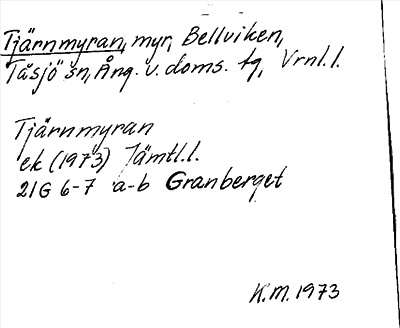 Tjärnmyran, myr, Bellviken,
Tåsjö sn, Ång. v. doms. tg, Vrnl. l.
Tjärnmyran
ek (1973) Jämtl. l.
21G 6-7 a-b Granberget
K.M. 1973